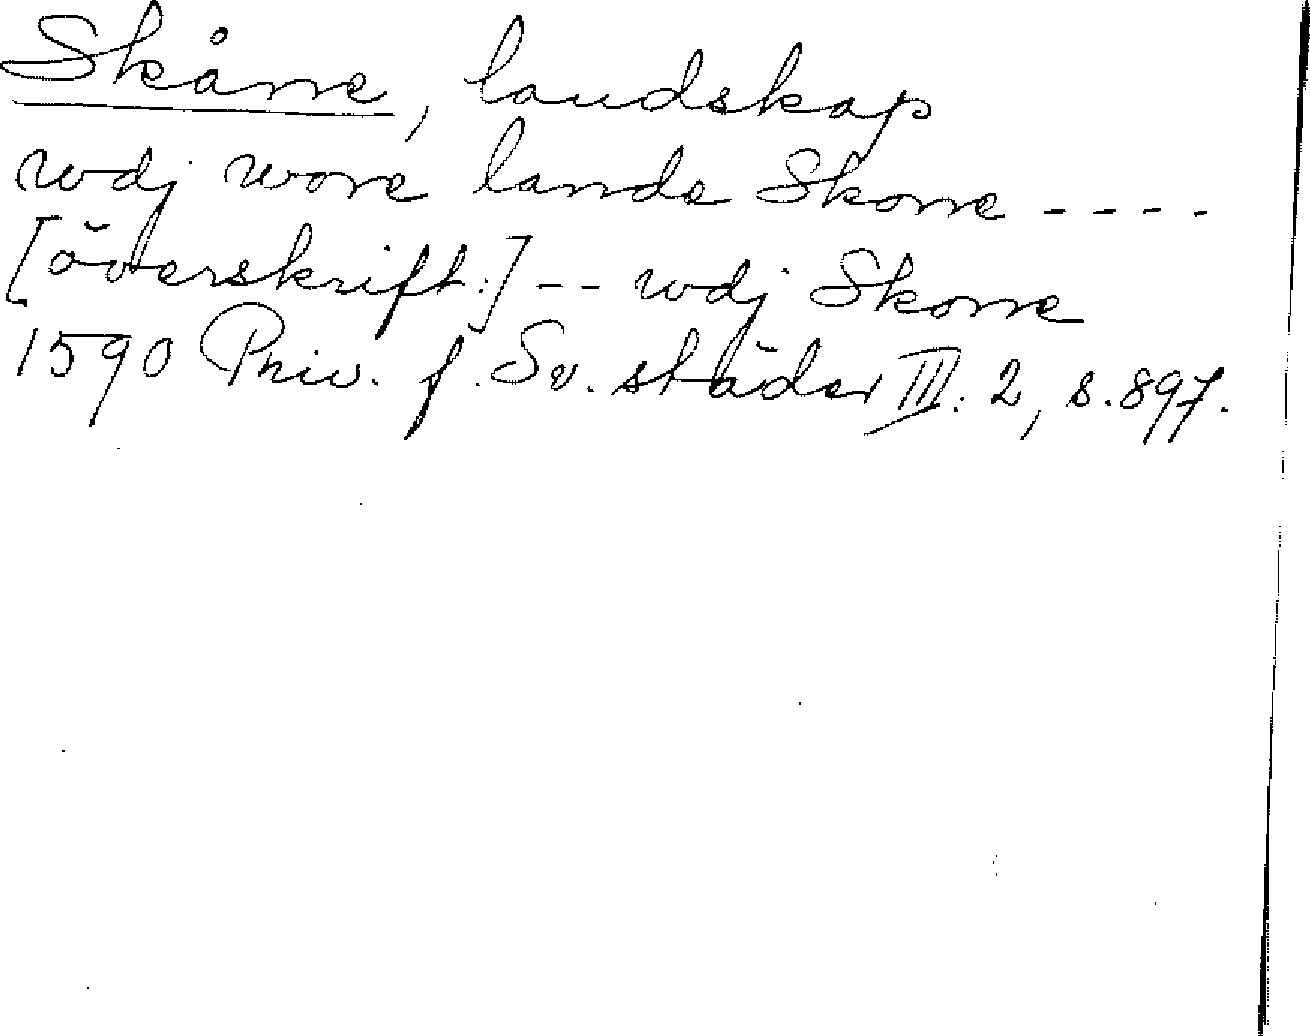 Skåne, landskap
wdj wore lande Skone ----
[överskrift:] -- wdj Skone
1590 Priv. f. Sv. städer III: 2, s. 897.